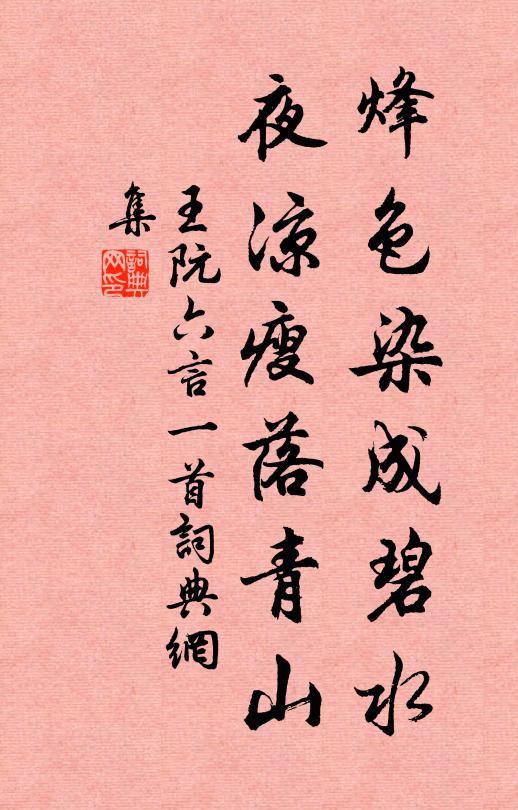 烽色染成碧水
夜凉瘦落青山
王阮六言一首詞典網
集
詞典
网印